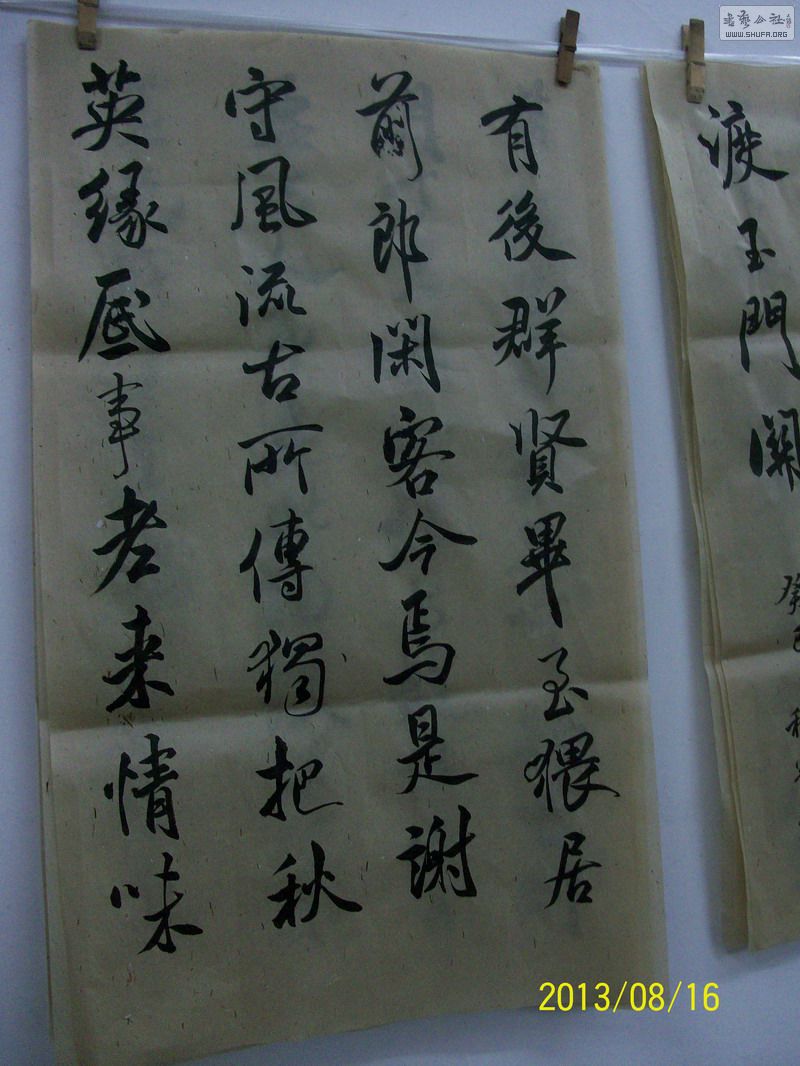 渡玉門關
癸巳秋
有後群賢畢至猥居
前郎閑客今焉是謝
守風流古所傳獨把秋
英緣底事老来情味
書藝公社
WWW.SHUFA.ORG
2013/08/16